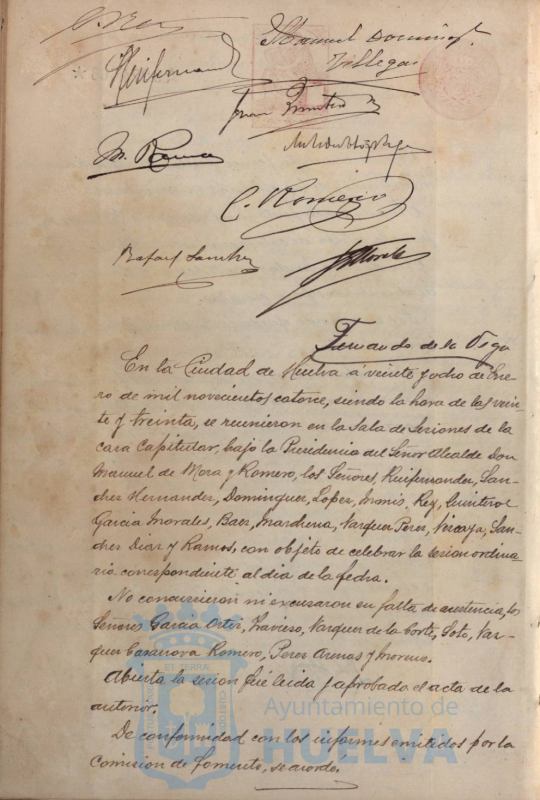 Manuel Dominguez
Villegas
Ruifernandez
Juan Quintero
M. Ramos
C. Romero
Rafael Sanchez
Fernando de la Vega
En la Ciudad de Huelva a veinte y ocho de Ene-
ro de mil novecientos catorce, siendo la hora de las vein-
te y treinta, se reunieron en la Sala de Sesiones de la
casa Capitular, bajo la Presidencia del Señor Alcalde Don
Manuel de Mora y Romero, los Señores, Ruifernandez, San-
chez Hernandez, Dominguez, Lopez, Rey, Quintero
Garcia Morales, Baez, Marchena, Vazquez Perez, Vizcaya, San-
chez Diaz y Ramos, con objeto de celebrar la sesion ordina-
ria correspondiente al dia de la fecha.
No concurrieron ni excusaron su falta de asistencia, los
Señores Garcia Ortiz, Travieso, Vazquez de la Corte, Soto, Vaz-
quez Casanova Romero, Perez Arenas y Moreno.
Abierta la sesion fué leida y aprobada el acta de la
anterior.
De conformidad con los informes emitidos por la
Comision de Fomento, se acordó.
Ayuntamiento de
HUELVA